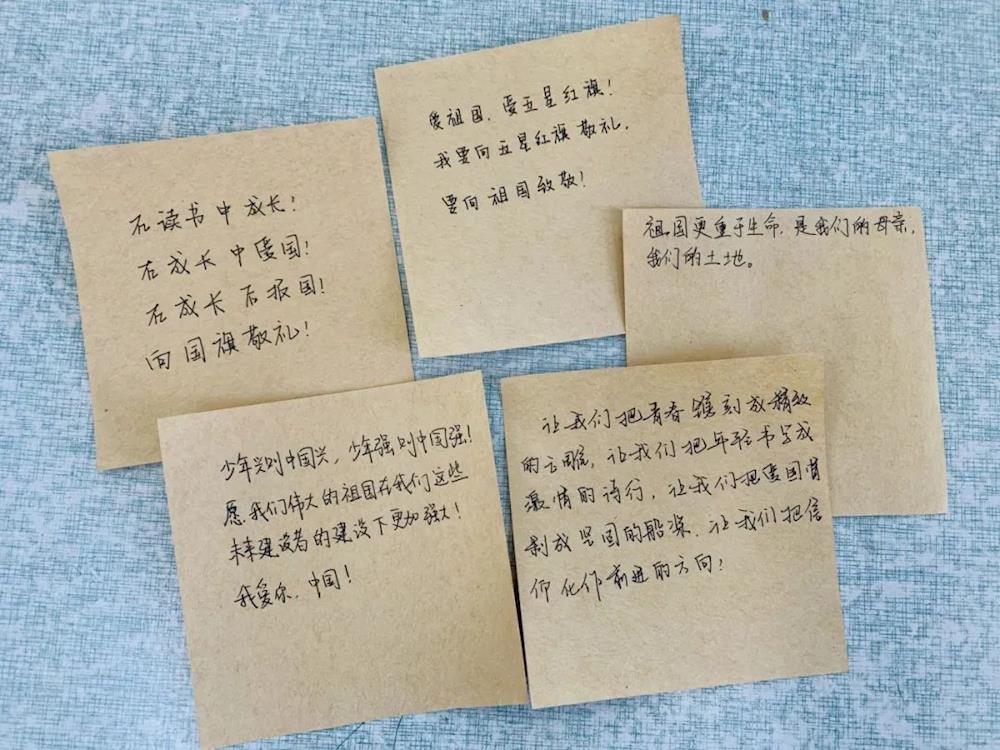 爱祖国，爱五星红旗！
我要向五星红旗敬礼，
要向祖国致敬！
在读书中成长！
在成长中爱国！
在成长后报国！
向国旗敬礼！
祖国更重于生命，是我们的母亲，
我们的土地。
少年兴则中国兴，少年强则中国强！
愿我们伟大的祖国在我们这些
未来建设者的建设下更加强大！
我爱你，中国！
让我们把青春镌刻成精致
的，让我们把年轻书写成
激情的诗行，让我们把爱国
制成坚固的船桨，让我们把信
仰化作前进的方向！